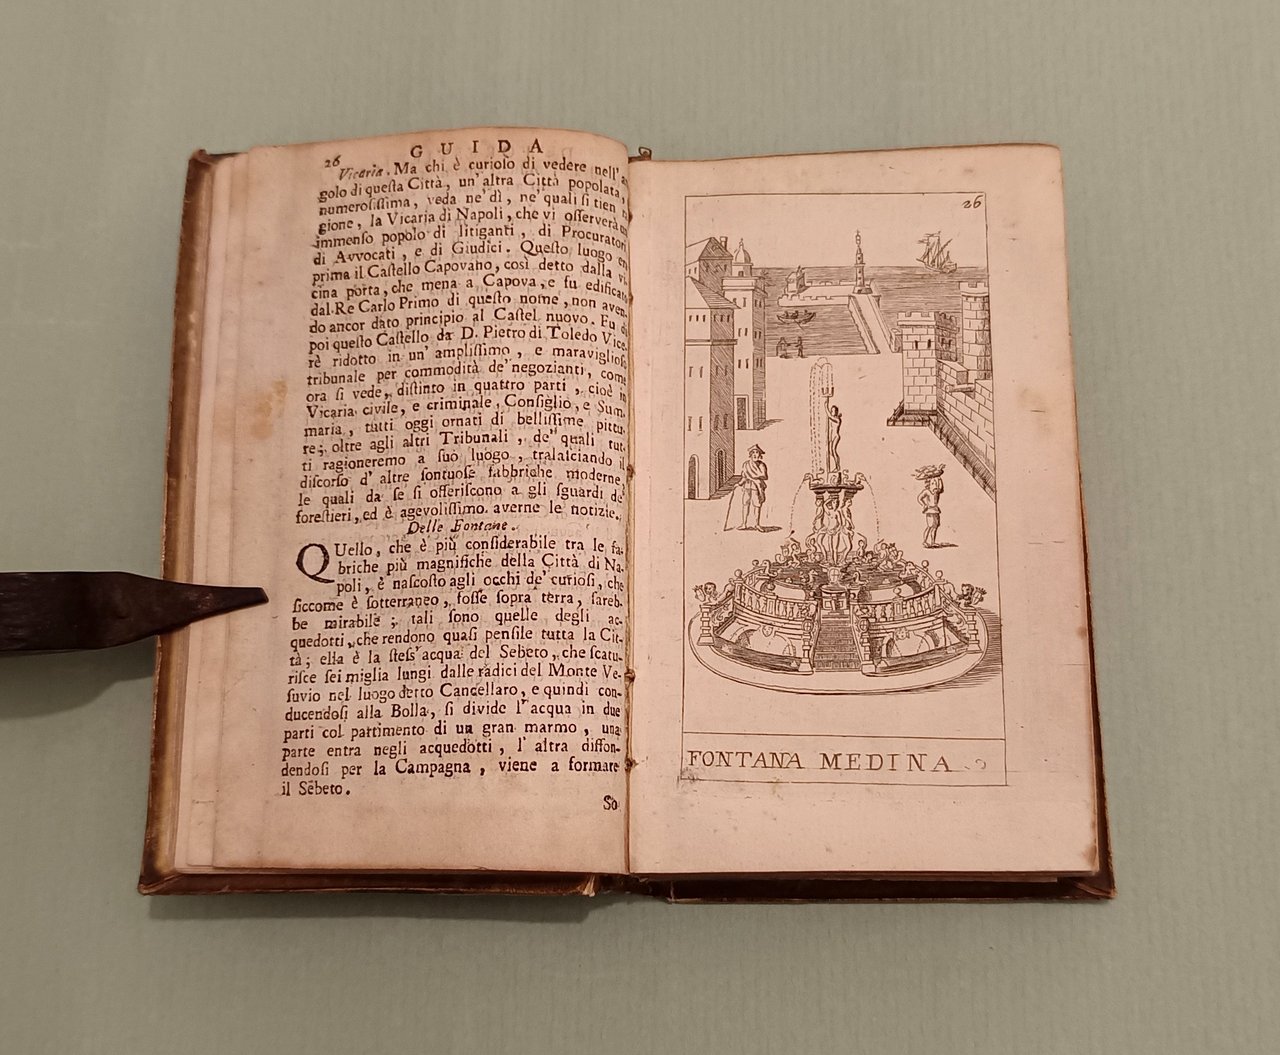 26
GUIDA
Vicaria. Ma chi è curioſo di vedere nell'
golo di queſta Città, un'altra Città popolata,
numeroſiſſima, veda ne'dì, ne'quali ſi tien
gione, la Vicaria di Napoli, che vi oſſerverà
immenſo popolo di litiganti, di Procuratori
di Avvocati, e di Giudici. Queſto luogo
prima il Caſtello Capovano, così detto dalla vi-
cina porta, che mena a Capova, e fu edificato
dal Re Carlo Primo di queſto nome, non aven-
do ancor dato principio al Caſtel nuovo. Fu
poi queſto Caſtello da D. Pietro di Toledo Vice-
rè ridotto in un'ampliſſimo, e maraviglioſo
tribunale per commodità de'negozianti, come
ora ſi vede, diſtinto in quattro parti, cioè in
Vicaria civile, e criminale, Conſiglio, e Sum-
maria, tutti oggi ornati di belliſſime pittu-
re; oltre agli altri Tribunali, de'quali tut-
ti ragioneremo a ſuo luogo, tralaſciando il
diſcorſo d'altre ſontuoſe fabbriche moderne,
le quali da ſe ſi offeriſcono a gli ſguardi de'
foreſtieri, ed è agevoliſſimo averne le notizie.
Delle Fontane.
QUello, che è più conſiderabile tra le fa-
briche più magnifiche della Città di Na-
poli, è naſcoſto agli occhi de'curioſi, che
ſiccome è ſotterraneo, foſſe ſopra terra, ſareb-
be mirabile; tali ſono quelle degli ac-
quedotti, che rendono quaſi penſile tutta la Cit-
tà; ella è la ſteſſ'acqua del Sebeto, che ſcatu-
riſce ſei miglia lungi dalle radici del Monte Ve-
ſuvio nel luogo detto Cancellaro, e quindi con-
ducendoſi alla Bolla, ſi divide l'acqua in due
parti col partimento di un gran marmo, una
parte entra negli acquedotti, l'altra diffon-
dendoſi per la Campagna, viene a formare
il Sebeto.
So
26
FONTANA MEDINA